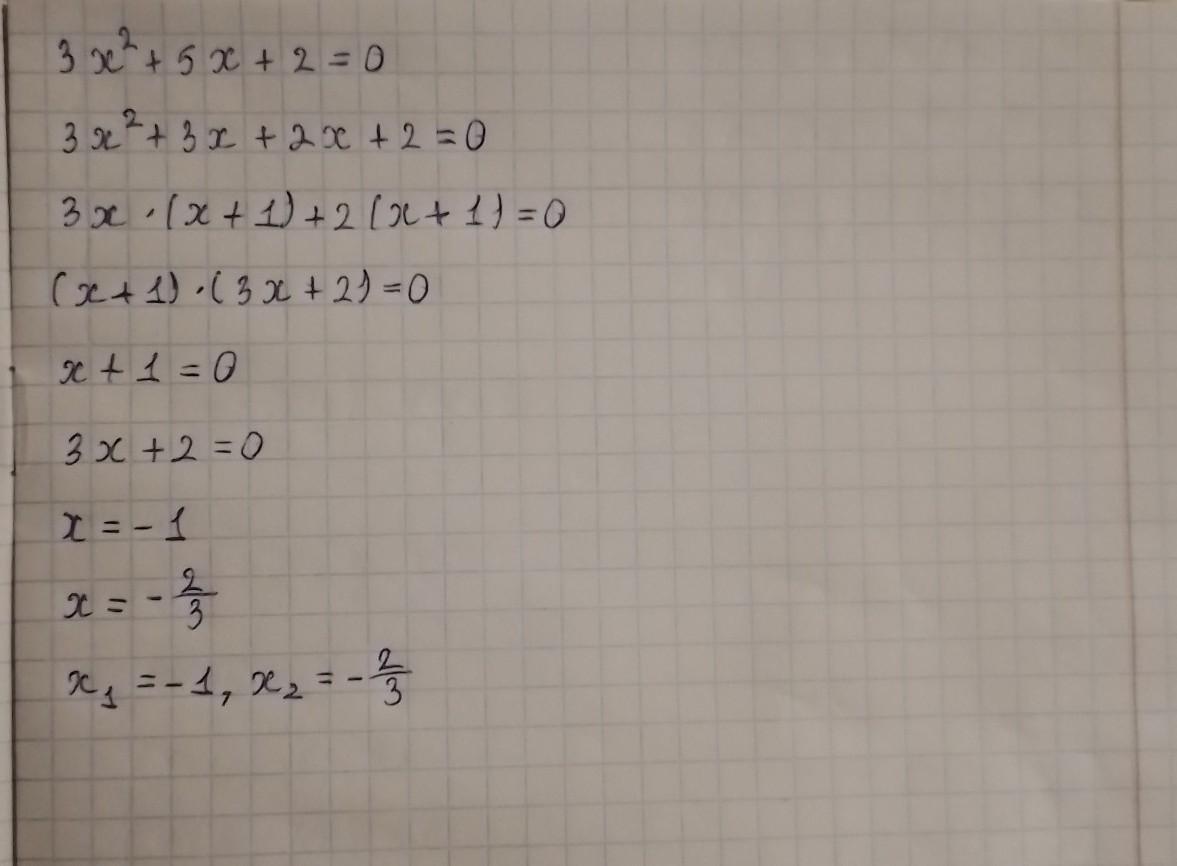 3x² + 5x + 2 = 0
3x² + 3x + 2x + 2 = 0
3x · (x + 1) + 2 (x + 1) = 0
(x + 1) · (3x + 2) = 0
x + 1 = 0
3x + 2 = 0
x = - 1
x = - 2/3
x₁ = - 1, x₂ = - 2/3